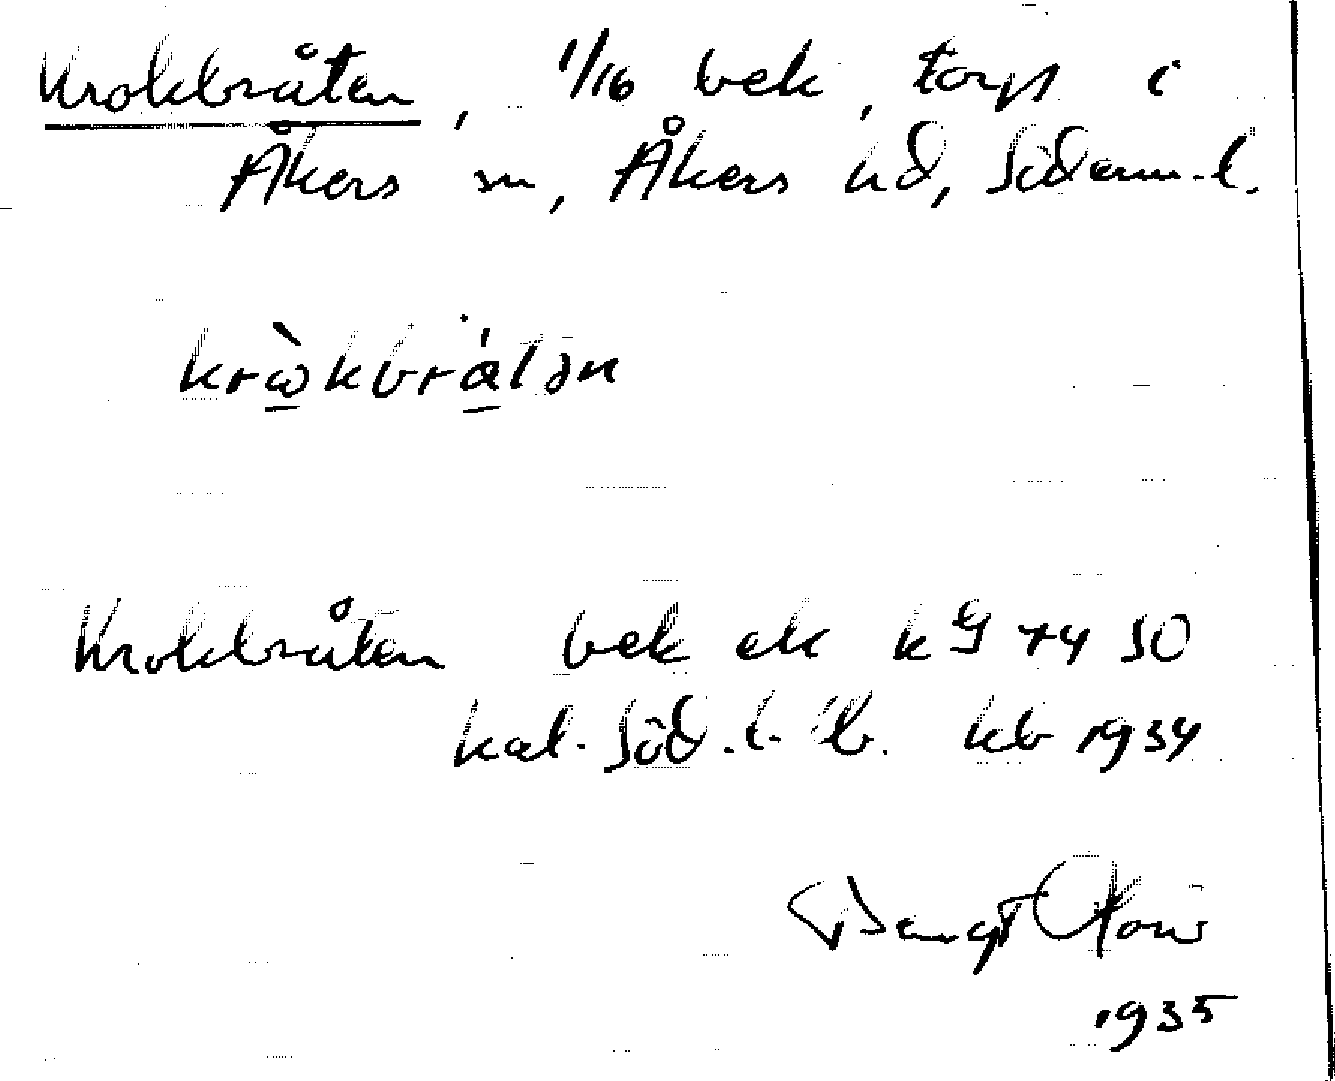 Krokbråten, 1/16 bek, torp i
Åkers sn, Åkers hd, Söderm. l.
kròkbrátən
Krokbråten bek ek kg 74 SO
kat. Söd. l. lb. kb 1934
Bengt
1935